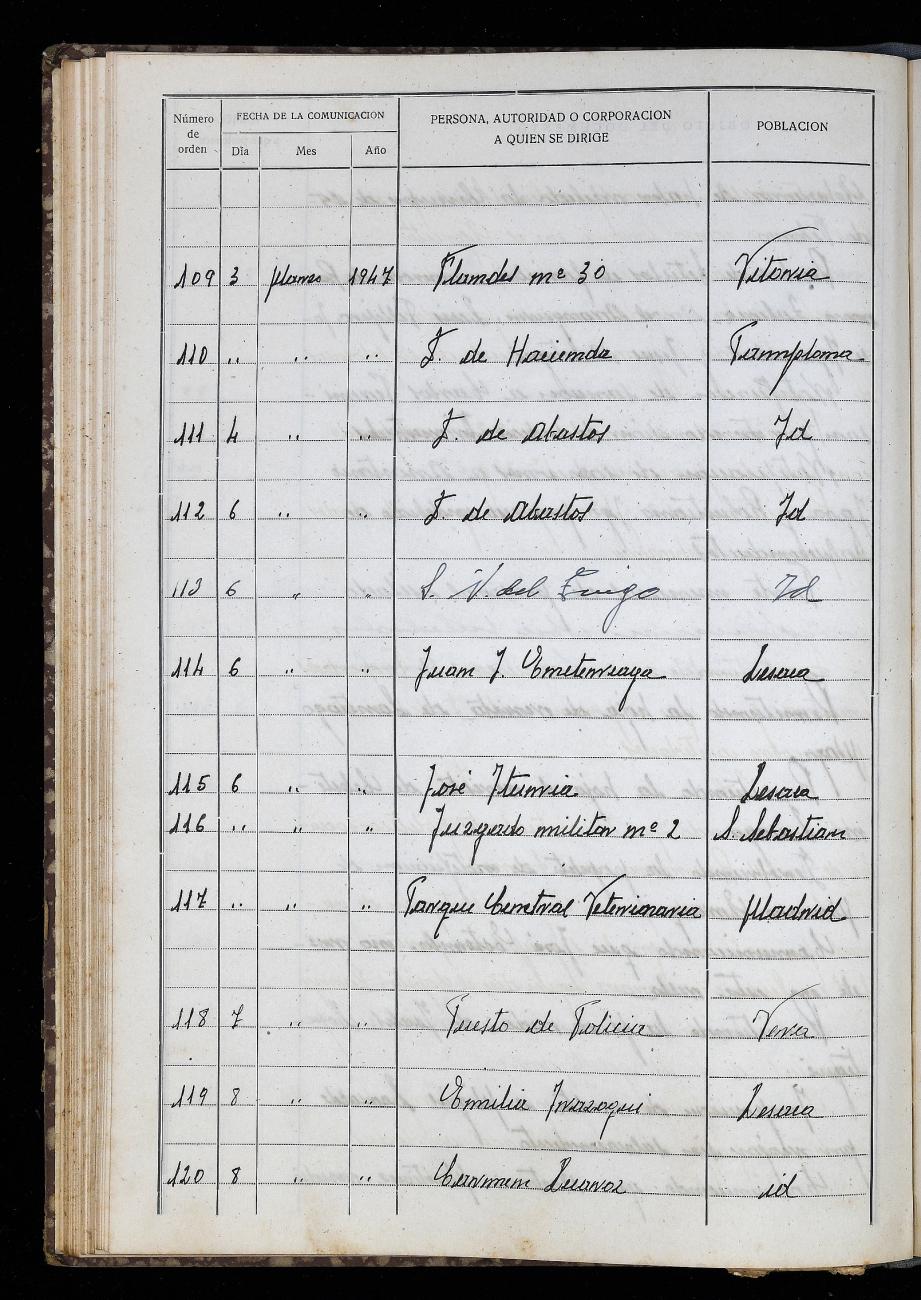 Número de orden | FECHA DE LA COMUNICACION | PERSONA, AUTORIDAD O CORPORACION A QUIEN SE DIRIGE | POBLACION
Dia | Mes | Año
109 3 Marzo 1947 Flandes nº 30 Vitoria
110 .. .. .. T. de Hacienda Pamplona
111 4 .. .. T. de Abastos Id
112 6 .. .. T. de Abastos Id
113 6 " " S. N. del Trigo Id
114 6 .. .. Juan J. Lesaca
115 6 .. .. José Iturria Lesaca
116 .. .. .. Juzgado militar nº 2 S. Sebastian
117 .. .. .. Parque Central Veterinaria Madrid
118 7 .. .. Puesto de Policia Vera
119 8 .. .. Emilia Irazoqui Lesaca
120 8 .. .. Carmen id